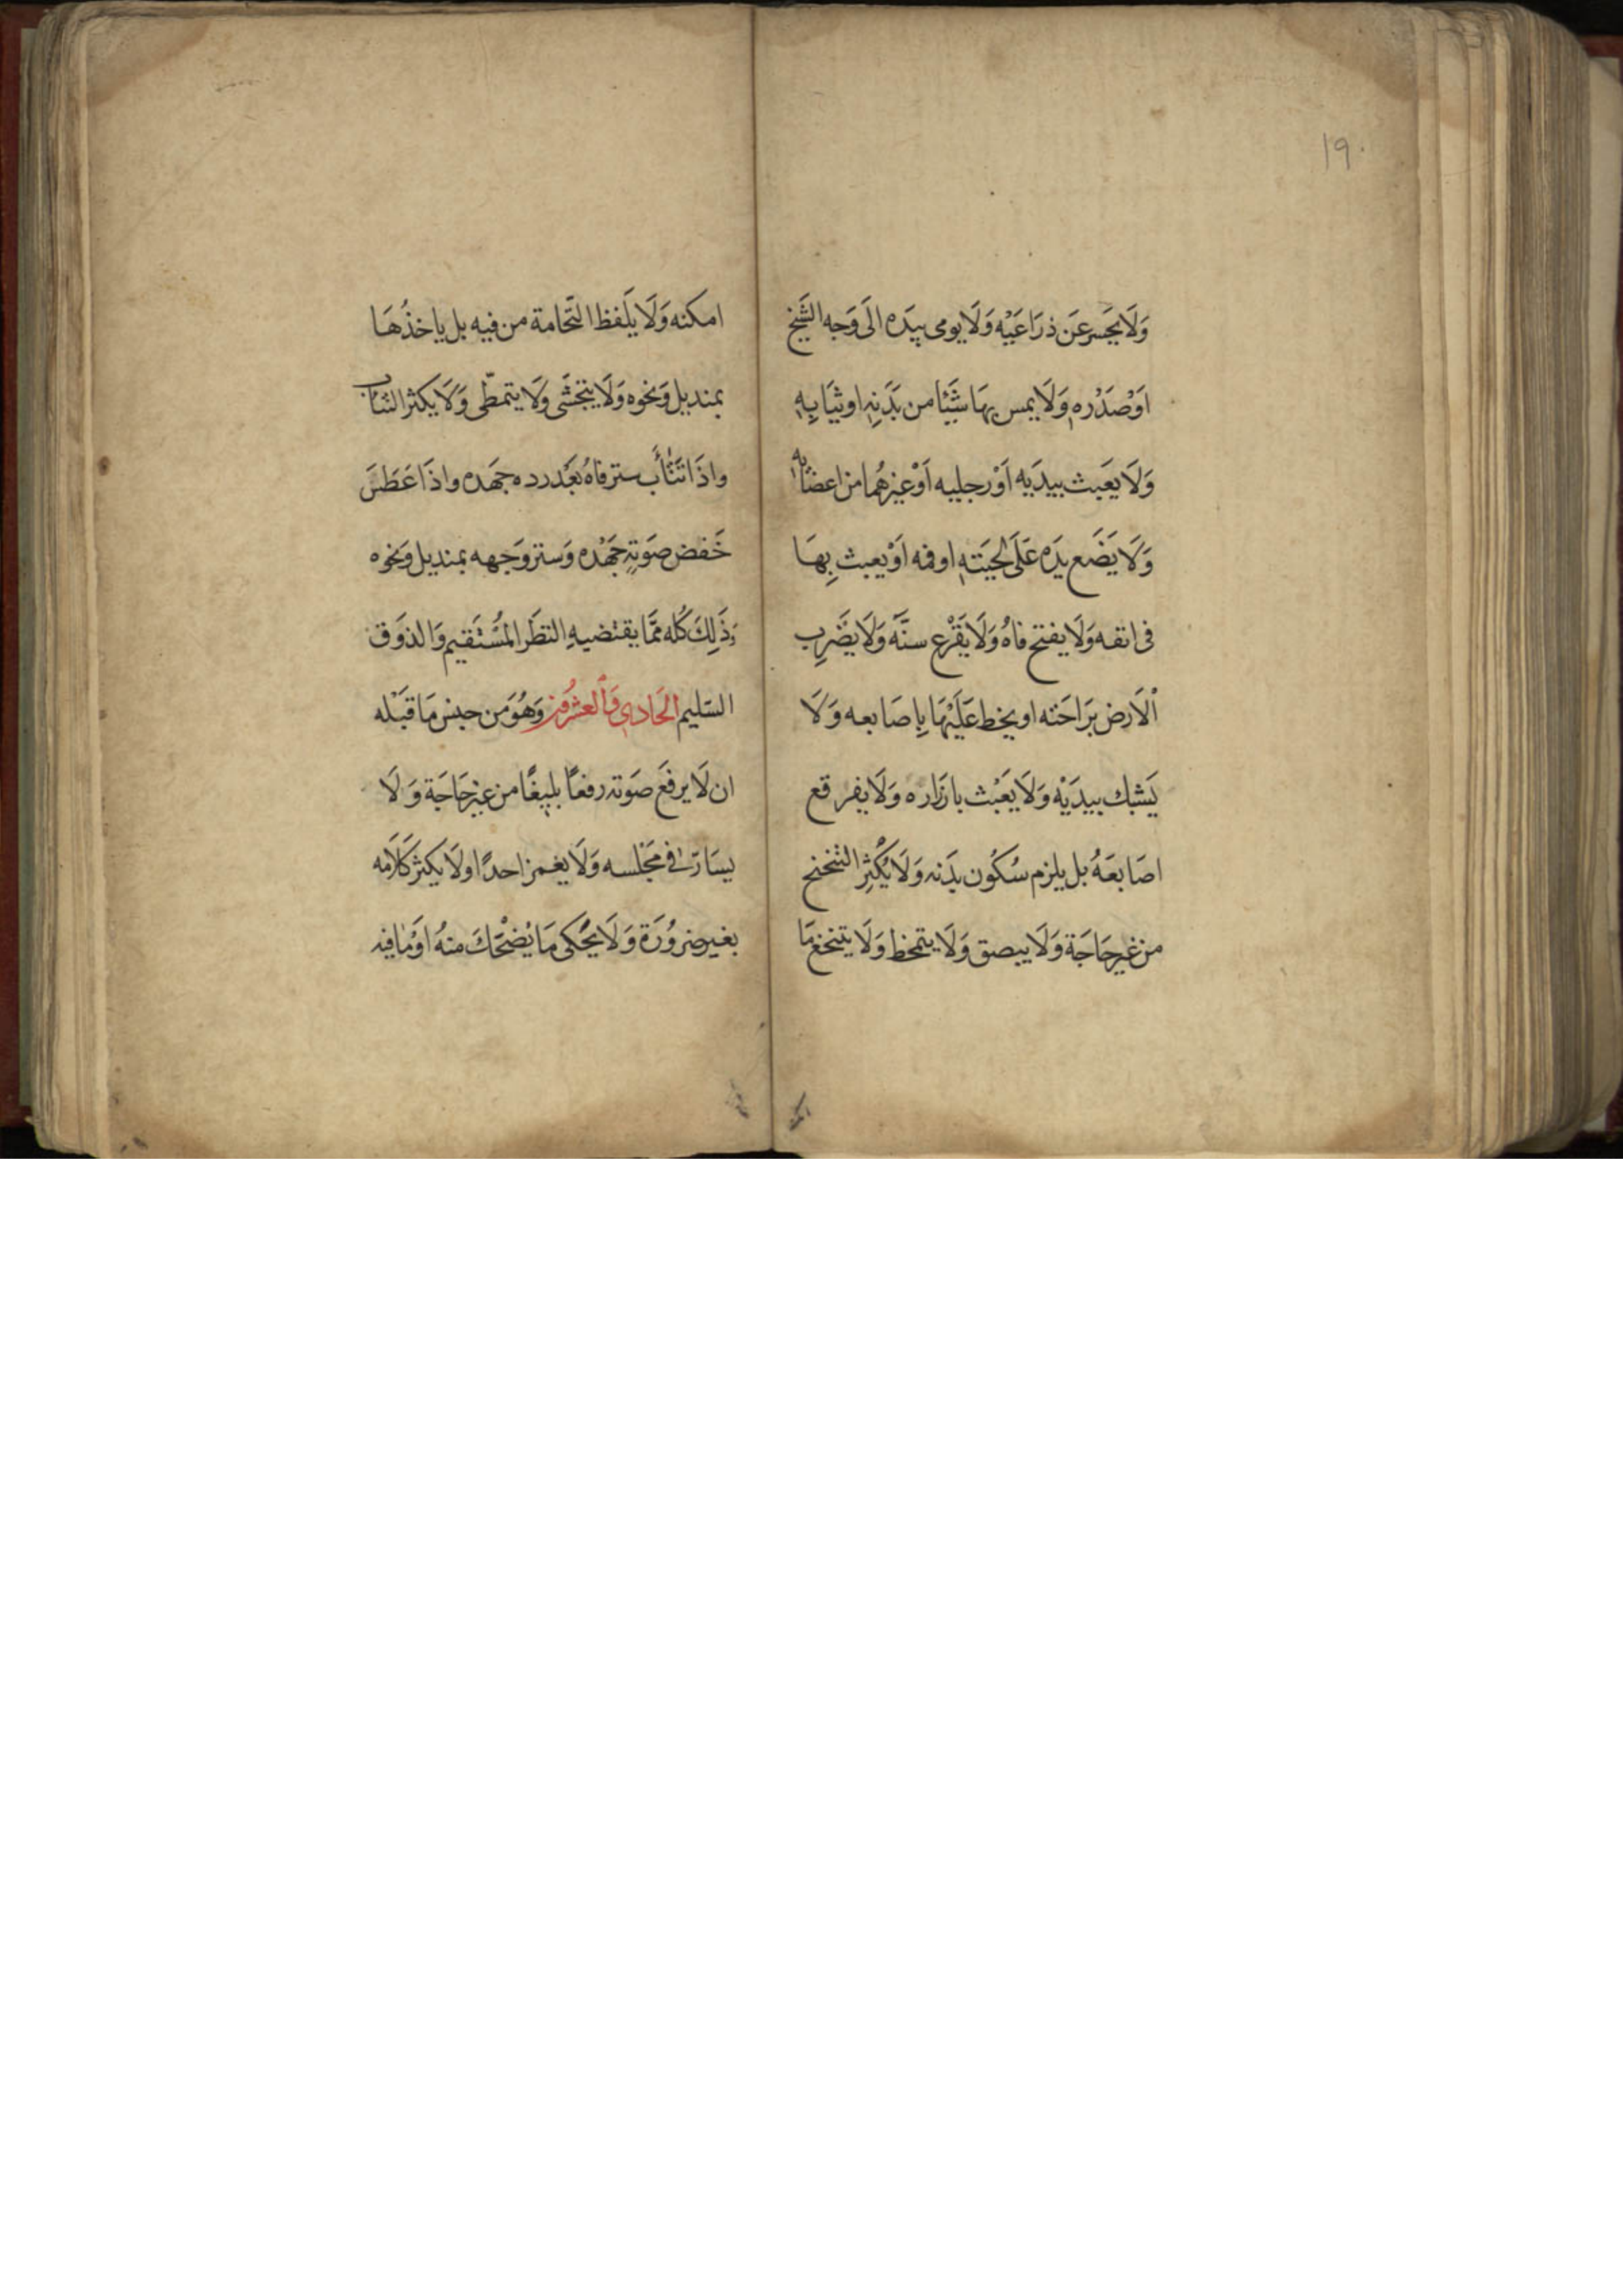 19.
وَلَا يَحسر عَن ذرَاعَيْه وَلَا يومى بيَده الَى وَجه الشَيخ
اوْصَدْره وَلَا يمس بهَا شَيْئا من بَدَنِهِ او ثيَابِهِ
وَلَا يعَبث بيدَيه اَوْ رجليه اَوْ غيرهُما من اعضَائه
وَلَا يَضَع يدَه عَلَى لحيَتهِ اوفمه اَوْ يعبث بِهَا
فى انفه وَلَا يفتح فاهُ وَلَا يَقْرْع سنَّه وَلَا يضَرِب
اْلَارض برَاحَته او يخط عَلَيْهَا بِاصَابعه وَلَا
يَشبك بيدَيْه وَلَا يَعَبْث بازَراره وَلَا يفرقع
اصَابعَهُ بل يلزم سُكُون بدَنه وَلَا يُكْثِر التنحنح
من غير حَاجَة وَلَا يبصق وَلَا يتمخط وَلَا يتنخع مَا
امكنه وَلَا يلَفظ النَّخامة من فيه بل ياخذُهَا
بمنديل وَنحوه وَلَا يتجَشَى وَلَا يتمطّى وَلَا يكثر التثاب
واذَا تَثَأَب ستر فاهُ بعَْد رده جهَده واذَا عَطَسَ
خَفض صَوتهِ جَهْده وَستر وَجهه بمنديل وَنحوه
وَذَلِكَ كُله ممَّا يقتضيهِ النظَر المُسْتَقيم وَالذوَق
السَليم الحَادي وَالعشرُون وَهُوَ من جنس مَا قبَْله
ان لَا يرفعَ صَوته رفعاً بليغًا من غير حَاجَة وَلَا
يسَارّ فى مَجْلسه وَلَا يغمز احدًا ولَا يكثر كَلَامه
بغير ضرُورَة وَلَا يحْكى مَا يُضْحَك منهُ اوْمَافيه